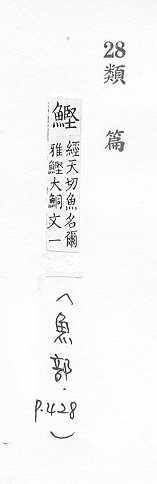 28
類篇
鰹
經天切魚名爾
雅鰹大鮦文一
(魚部.
P.428)